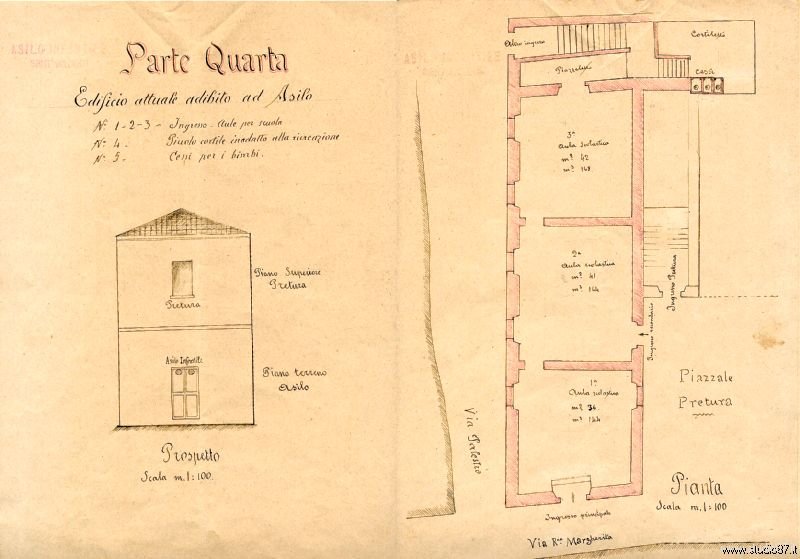 Parte Quarta
Edificio attuale adibito ad Asilo
N.° 1-2-3 - Ingresso - Aule per scuola
N.° 4. Piccolo cortile inadatto alla ricreazione
N.° 5. Cessi per i bimbi.
Piano Superiore
Pretura
Pretura
Asilo Infantile
Piano terreno
Asilo
Prospetto
Scala m. 1:100.
ASILO
Altro ingresso
Cortiletto
Piazzaletto
Cessi
3ª
Aula scolastica
m.q. 42
m.c. 168
2ª
Aula scolastica
m.q. 41
m.c. 164
Ingresso Pretura
Ingresso secondario
1ª
Aula scolastica
m.q. 36
m.c. 144
Piazzale
Pretura
Via Palestro
Ingresso principale
Via R.na Margherita
Pianta
Scala m. 1:100
www.studio87.it